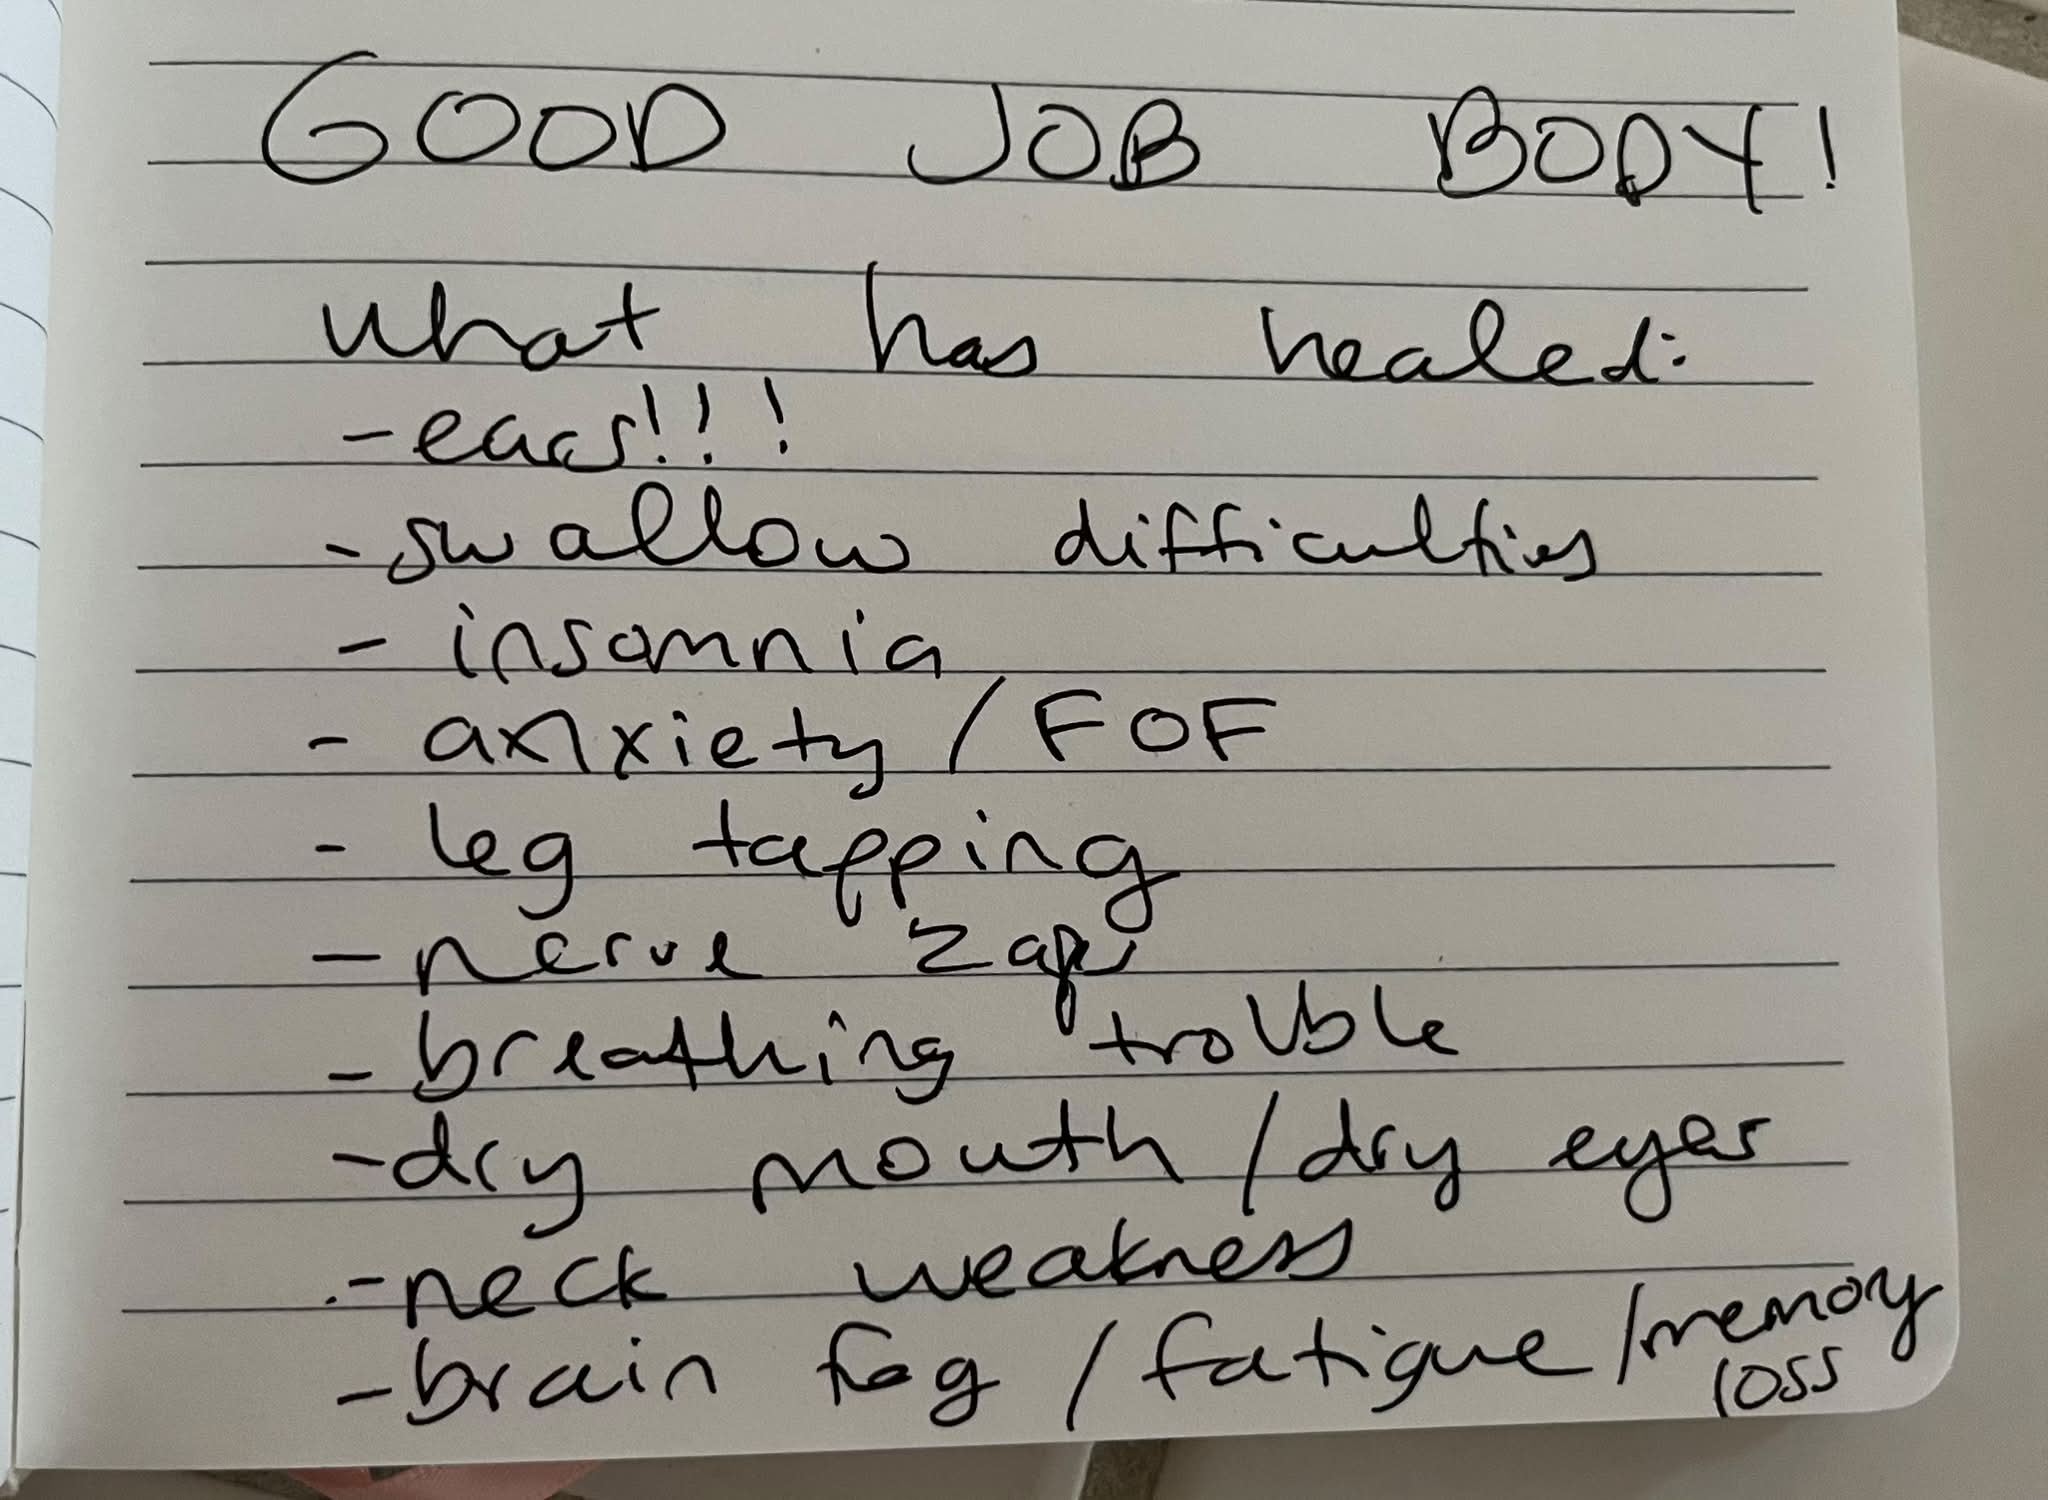 GOOD JOB BODY!
what has healed:
- ears!!!
- swallow difficulties
- insomnia
- anxiety / FOF
- leg tapping
- nerve zaps
- breathing trouble
- dry mouth / dry eyes
- neck weakness
- brain fog / fatigue / memory
loss